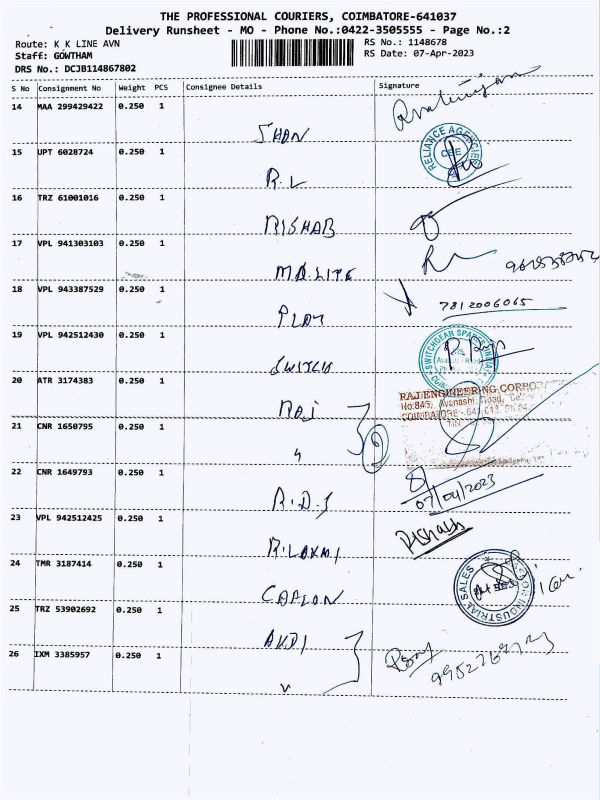 THE PROFESSIONAL COURIERS, COIMBATORE-641037
Delivery Runsheet - MO - Phone No.:0422-3505555 - Page No.:2
Route: K K LINE AVN
RS No.: 1148678
Staff: GOWTHAM
RS Date: 07-Apr-2023
DRS No.: DCJB114867802
S No Consignment No Weight PCS Consignee Details Signature
14 MAA 299429422 0.250 1
SHAN
15 UPT 6028724 0.250 1
RELIANCE AGENCIES
CBE
R.L
16 TRZ 61001016 0.250 1
RISHAB
17 VPL 941303103 0.250 1
18 VPL 943387529 0.250 1
7812006065
PLAY
19 VPL 942512430 0.250 1
SWITCH
20 ATR 3174383 0.250 1
RAJ ENGINEERING CORPORA
No:843, Avanashi Road,
COIMBATORE - 641 018
RAJ
21 CNR 1650795 0.250 1
2
22 CNR 1649793 0.250 1
07/04/2023
23 VPL 942512425 0.250 1
Rishabh
R.LAXMI
24 TMR 3187414 0.250 1
INDUSTRIAL SALES
25 TRZ 53902692 0.250 1
26 IXM 3385957 0.250 1